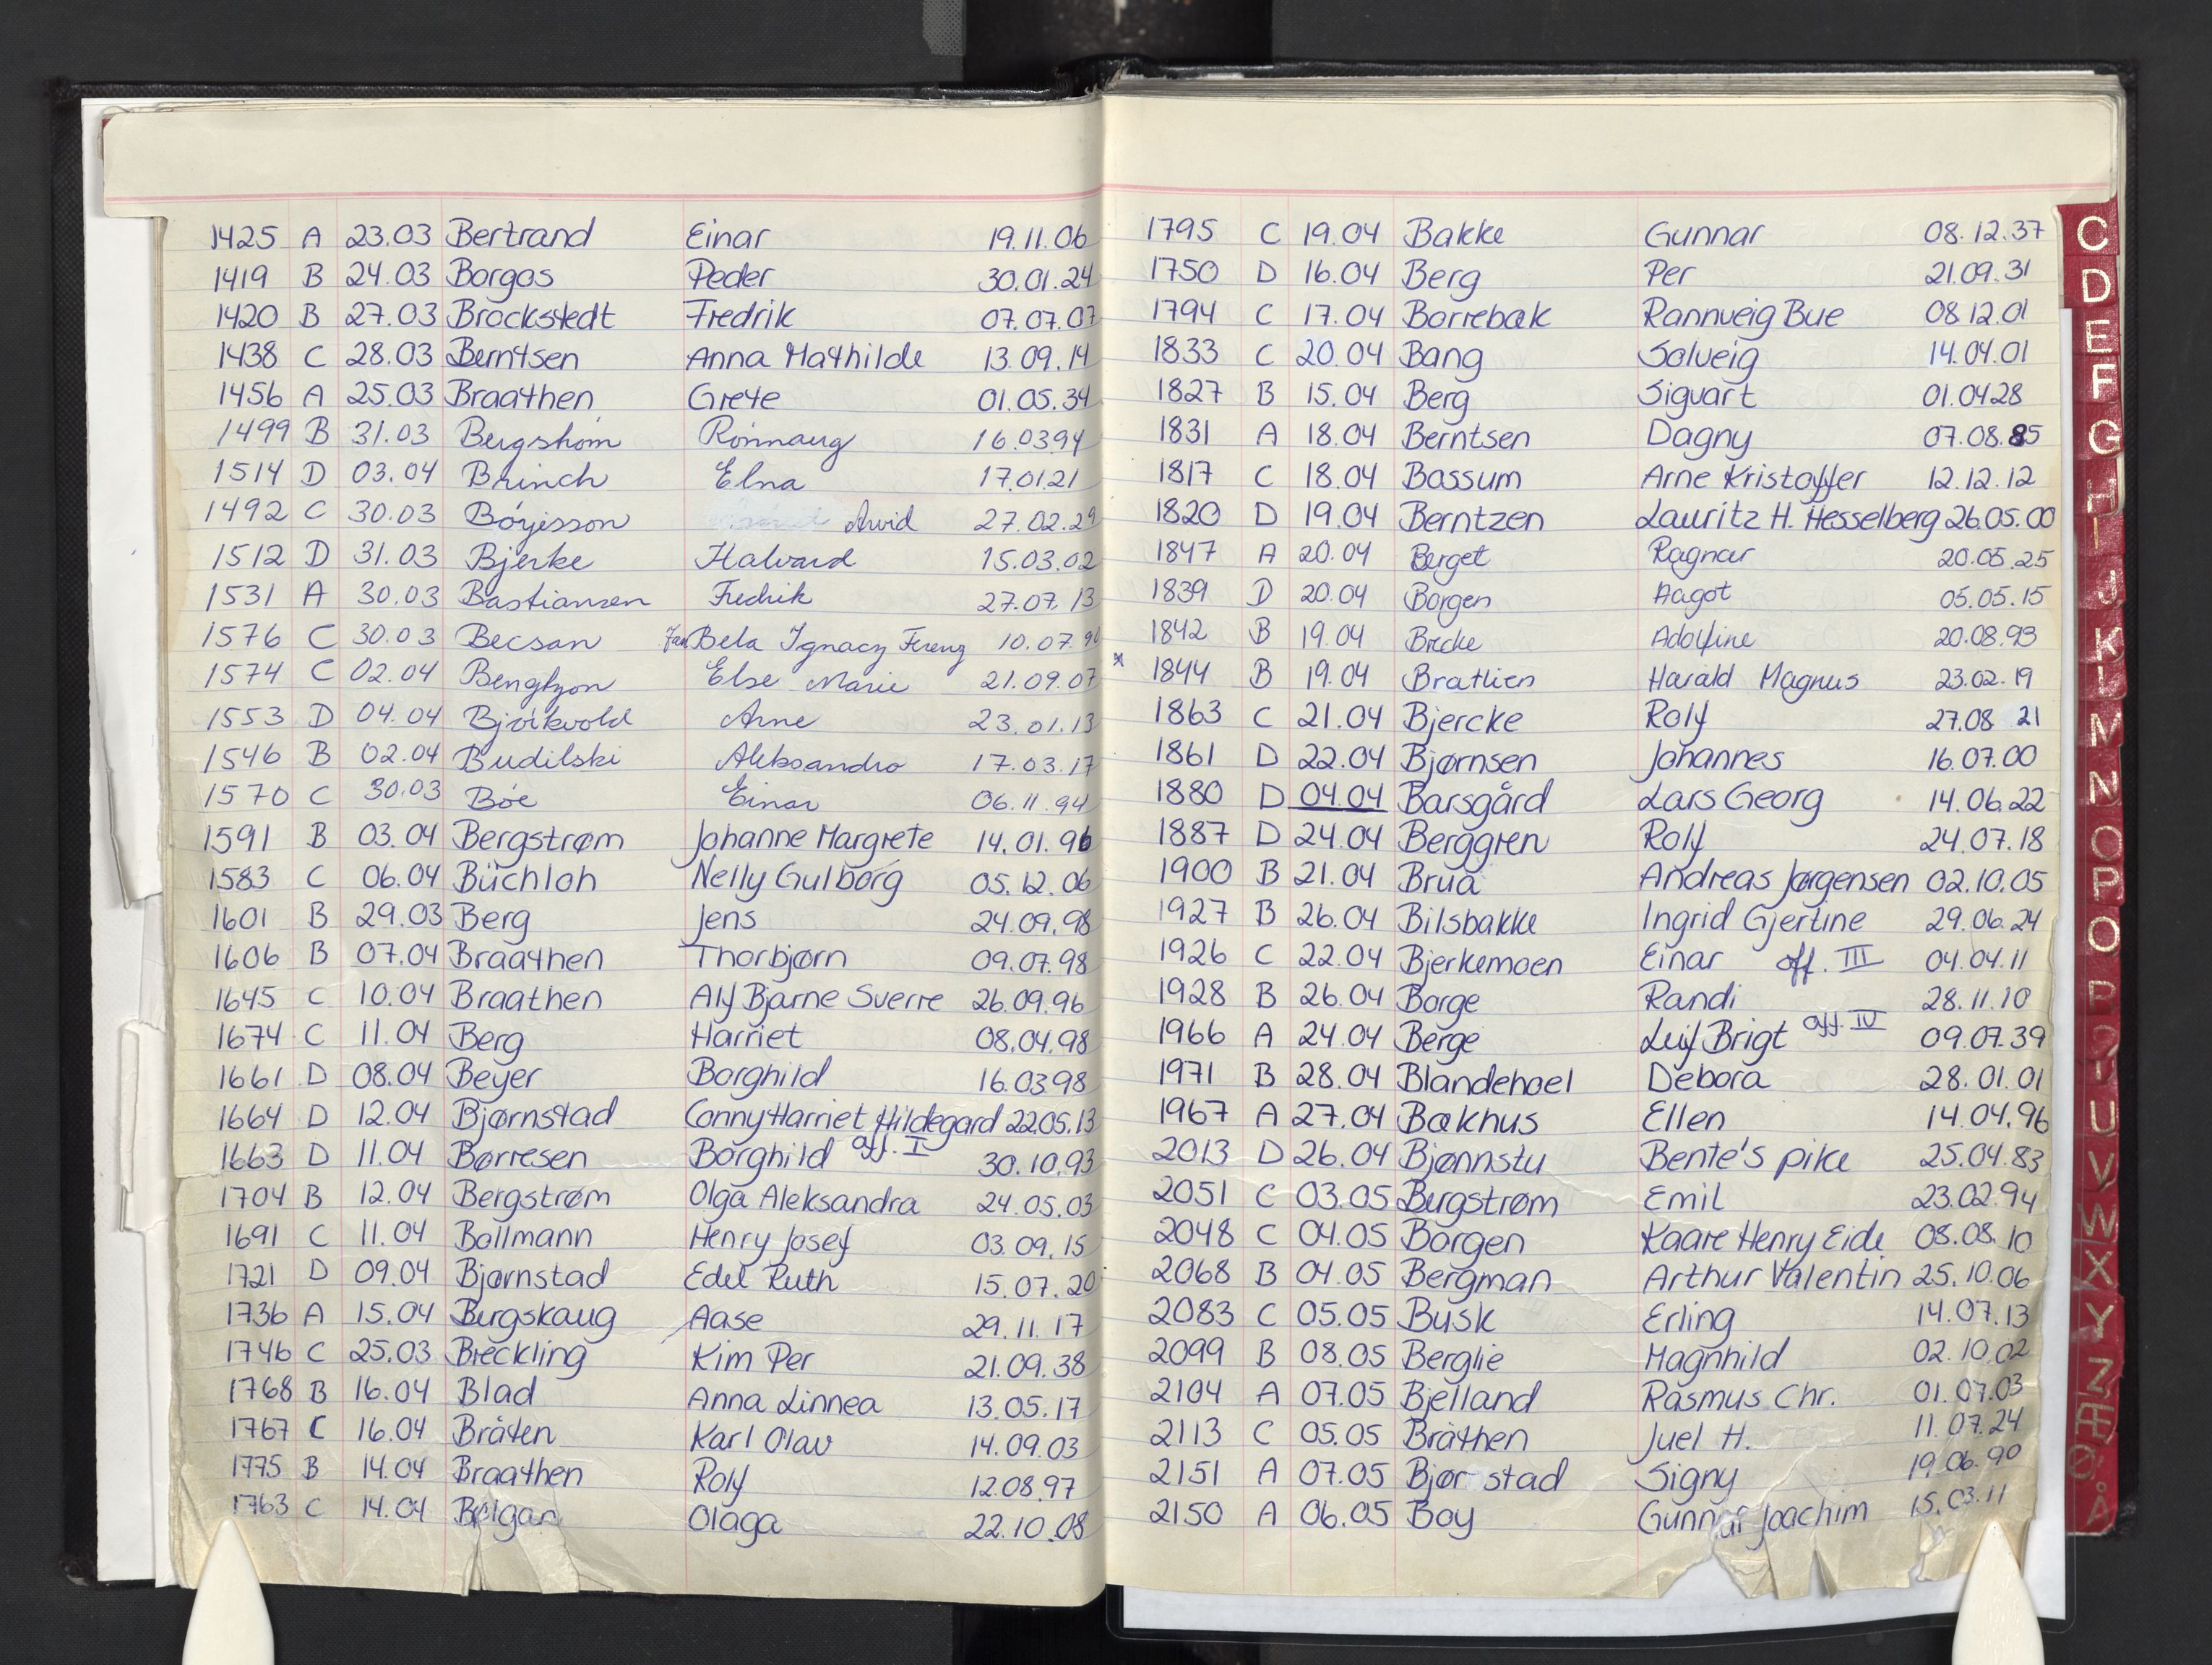 1425 A 23.03 Bertrand Einar 19.11.06
1419 B 24.03 Borgos Peder 30.01.24
1420 B 27.03 Brockstedt Fredrik 07.07.07
1438 C 28.03 Berntsen Anna Mathilde 13.09.14
1456 A 25.03 Braathen Grete 01.05.34
1499 B 31.03 Bergstrøm Rönnaug 16.03.94
1514 D 03.04 Brinch Elna 17.01.21
1492 C 30.03 Börjesson Arvid 27.02.29
1512 D 31.03 Bjerke Halvard 15.03.02
1531 A 30.03 Bastiansen Fredrik 27.07.13
1576 C 30.03 Becsan Bela Ignacz Ferenz 10.07.
1574 C 02.04 Bengtzon Else Marie 21.09.07
1553 D 04.04 Björkvold Arne 23.01.13
1546 B 02.04 Budilski Aleksandro 17.03.17
1570 C 30.03 Böe Einar 06.11.94
1591 B 03.04 Bergstrøm Johanne Margrete 14.01.96
1583 C 06.04 Büchloh Nelly Gulborg 05.12.06
1601 B 29.03 Berg Jens 24.09.98
1606 B 07.04 Braathen Thorbjørn 09.07.98
1645 C 10.04 Braathen Alf Bjarne Sverre 26.09.96
1674 C 11.04 Berg Harriet 08.04.98
1661 D 08.04 Beyer Borghild 16.0398
1664 D 12.04 Bjørnstad Conny Harriet Hildegard 22.05.13
1663 D 11.04 Børresen Borghild off. I 30.10.93
1704 B 12.04 Bergstrøm Olga Aleksandra 24.05.03
1691 C 11.04 Bollmann Henry Josef 03.09.15
1721 D 09.04 Bjørnstad Edel Ruth 15.07.20
1736 A 15.04 Bergskaug Aase 29.11.17
1746 C 25.03 Breckling Kim Per 21.09.38
1768 B 16.04 Blad Anna Linnea 13.05.17
1767 C 16.04 Bråten Karl Olav 14.09.03
1775 B 14.04 Braathen Rolf 12.08.97
1763 C 14.04 Bølgan Olaga 22.10.08
1795 C 19.04 Bakke Gunnar 08.12.37
1750 D 16.04 Berg Per 21.09.31
1794 C 17.04 Borrebæk Rannveig Bue 08.12.01
1833 C 20.04 Bang Solveig 14.04.01
1827 B 15.04 Berg Sigvart 01.0428
1831 A 18.04 Berntsen Dagny 07.08.85
1817 C 18.04 Bossum Arne Kristoffer 12.12.12
1820 D 19.04 Berntzen Lauritz H. Hesselberg 26.05.00
1847 A 20.04 Berget Ragnar 20.05.25
1839 D 20.04 Borgen Aagot 05.05.15
1842 B 19.04 Brecke Adolfine 20.08.93
x 1844 B 19.04 Bratlien Harald Magnus 23.02.19
1863 C 21.04 Bjercke Rolf 27.08 21
1861 D 22.04 Bjørnsen Johannes 16.07.00
1880 D 04.04 Barsgård Lars Georg 14.06.22
1887 D 24.04 Berggren Rolf 24.07.18
1900 B 21.04 Brua Andreas Jørgensen 02.10.05
1927 B 26.04 Bilsbakke Ingrid Gjertine 29.06.24
1926 C 22.04 Bjerkemoen Einar off. III 04.04.11
1928 B 26.04 Borge Randi 28.11.10
1966 A 24.04 Berge Leif Brigt off. IV 09.07.39
1971 B 28.04 Blandehoel Debora 28.01.01
1967 A 27.04 Bakhus Ellen 14.04.96
2013 D 26.04 Bjønnstu Bente's pike 25.04.83
2051 C 03.05 Bergstrøm Emil 23.02.94
2048 C 04.05 Borgen Kaare Henry Eide 08.08.10
2068 B 04.05 Bergman Arthur Valentin 25.10.06
2083 C 05.05 Busk Erling 14.07.13
2099 B 08.05 Berglie Magnhild 02.10.02
2104 A 07.05 Bjelland Rasmus Chr. 01.07.03
2113 C 05.05 Bråthen Juel H. 11.07.24
2151 A 07.05 Bjør stad Signy 19.06.90
2150 A 06.05 Boy Gunnar Joachim 15.03.11
C
D
E
F
G
H
I
J
K
L
M
N
O
P
O
P
U
V
W
X
Y
Z
Æ
Ø
Å